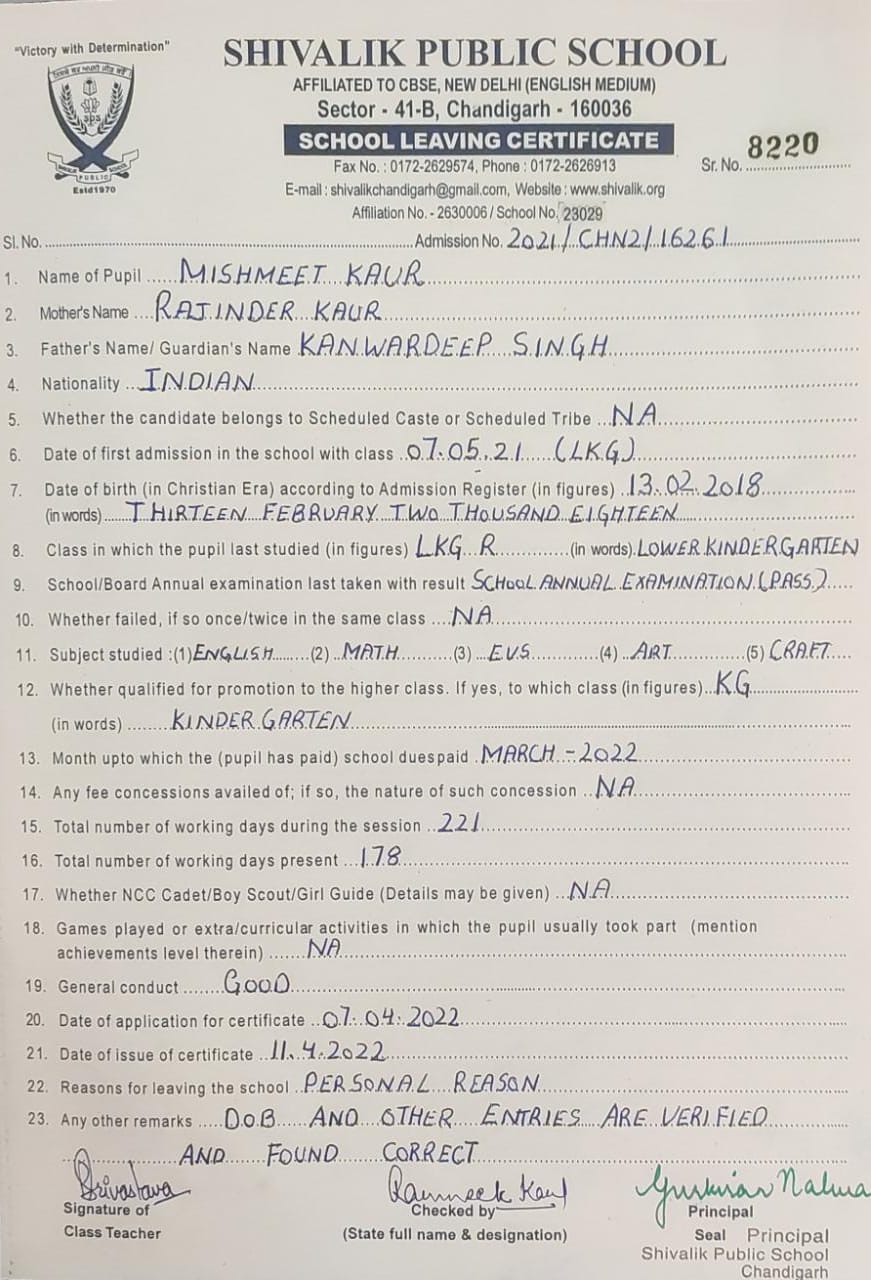 "Victory with Determination"
SHIVALIK PUBLIC SCHOOL
AFFILIATED TO CBSE, NEW DELHI (ENGLISH MEDIUM)
Sector - 41-B, Chandigarh - 160036
SCHOOL LEAVING CERTIFICATE
Fax No. : 0172-2629574, Phone : 0172-2626913
Sr. No. 8220
E-mail : shivalikchandigarh@gmail.com, Website : www.shivalik.org
Affiliation No. - 2630006 / School No. 23029
sps
SHIVALIK PUBLIC SCHOOL
Estd1970
Sl. No. Admission No. 2021/CHN2/16261
1. Name of Pupil MISHMEET KAUR
2. Mother's Name RAJINDER KAUR
3. Father's Name/ Guardian's Name KANWARDEEP SINGH
4. Nationality INDIAN
5. Whether the candidate belongs to Scheduled Caste or Scheduled Tribe NA
6. Date of first admission in the school with class 07.05.21 (LKG)
7. Date of birth (in Christian Era) according to Admission Register (in figures) 13.02.2018
(in words) THIRTEEN FEBRUARY TWO THOUSAND EIGHTEEN
8. Class in which the pupil last studied (in figures) LKG R (in words) LOWER KINDERGARTEN
9. School/Board Annual examination last taken with result SCHOOL ANNUAL EXAMINATION (PASS)
10. Whether failed, if so once/twice in the same class NA
11. Subject studied :(1) ENGLISH (2) MATH (3) EVS (4) ART (5) CRAFT
12. Whether qualified for promotion to the higher class. If yes, to which class (in figures) KG
(in words) KINDER GARTEN
13. Month upto which the (pupil has paid) school duespaid MARCH - 2022
14. Any fee concessions availed of; if so, the nature of such concession NA
15. Total number of working days during the session 221
16. Total number of working days present 178
17. Whether NCC Cadet/Boy Scout/Girl Guide (Details may be given) NA
18. Games played or extra/curricular activities in which the pupil usually took part (mention
achievements level therein) NA
19. General conduct GOOD
20. Date of application for certificate 07.04.2022
21. Date of issue of certificate 11.4.2022
22. Reasons for leaving the school PERSONAL REASON
23. Any other remarks D.O.B AND OTHER ENTRIES ARE VERIFIED
AND FOUND CORRECT
Srivastava
Signature of
Class Teacher
Ramneek Kaur
Checked by
(State full name & designation)
Principal
Seal Principal
Shivalik Public School
Chandigarh